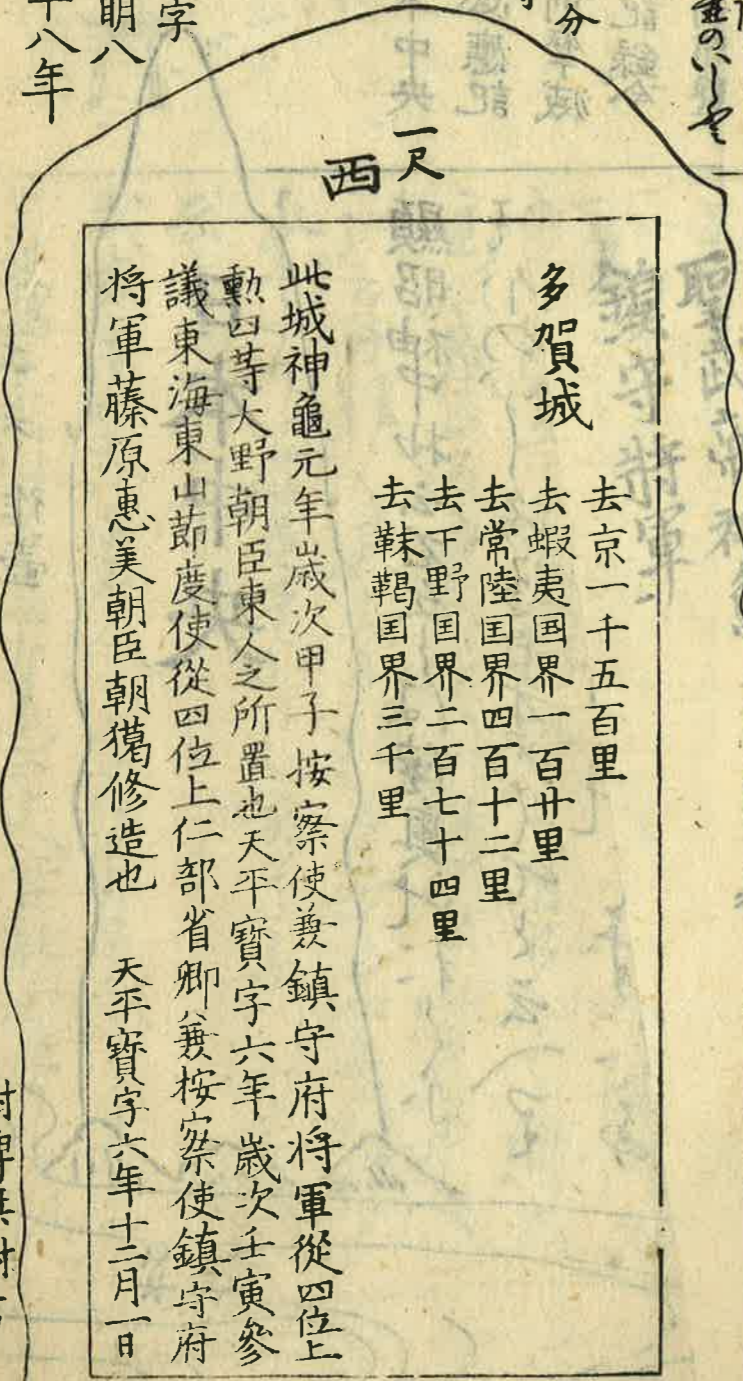 一尺
西
多賀城
去京一千五百里
去蝦夷国界一百廾里
去常陸国界四百十二里
去下野国界二百七十四里
去靺鞨国界三千里
此城神龜元年歳次甲子按察使兼鎮守府将軍從四位上
勲四等大野朝臣東人之所置也天平寳字六年歳次壬寅參
議東海東山節度使從四位上仁部省卿兼按察使鎮守府
将軍藤原惠美朝臣朝獦修造也　天平寳字六年十二月一日
分
字
明八
十八年